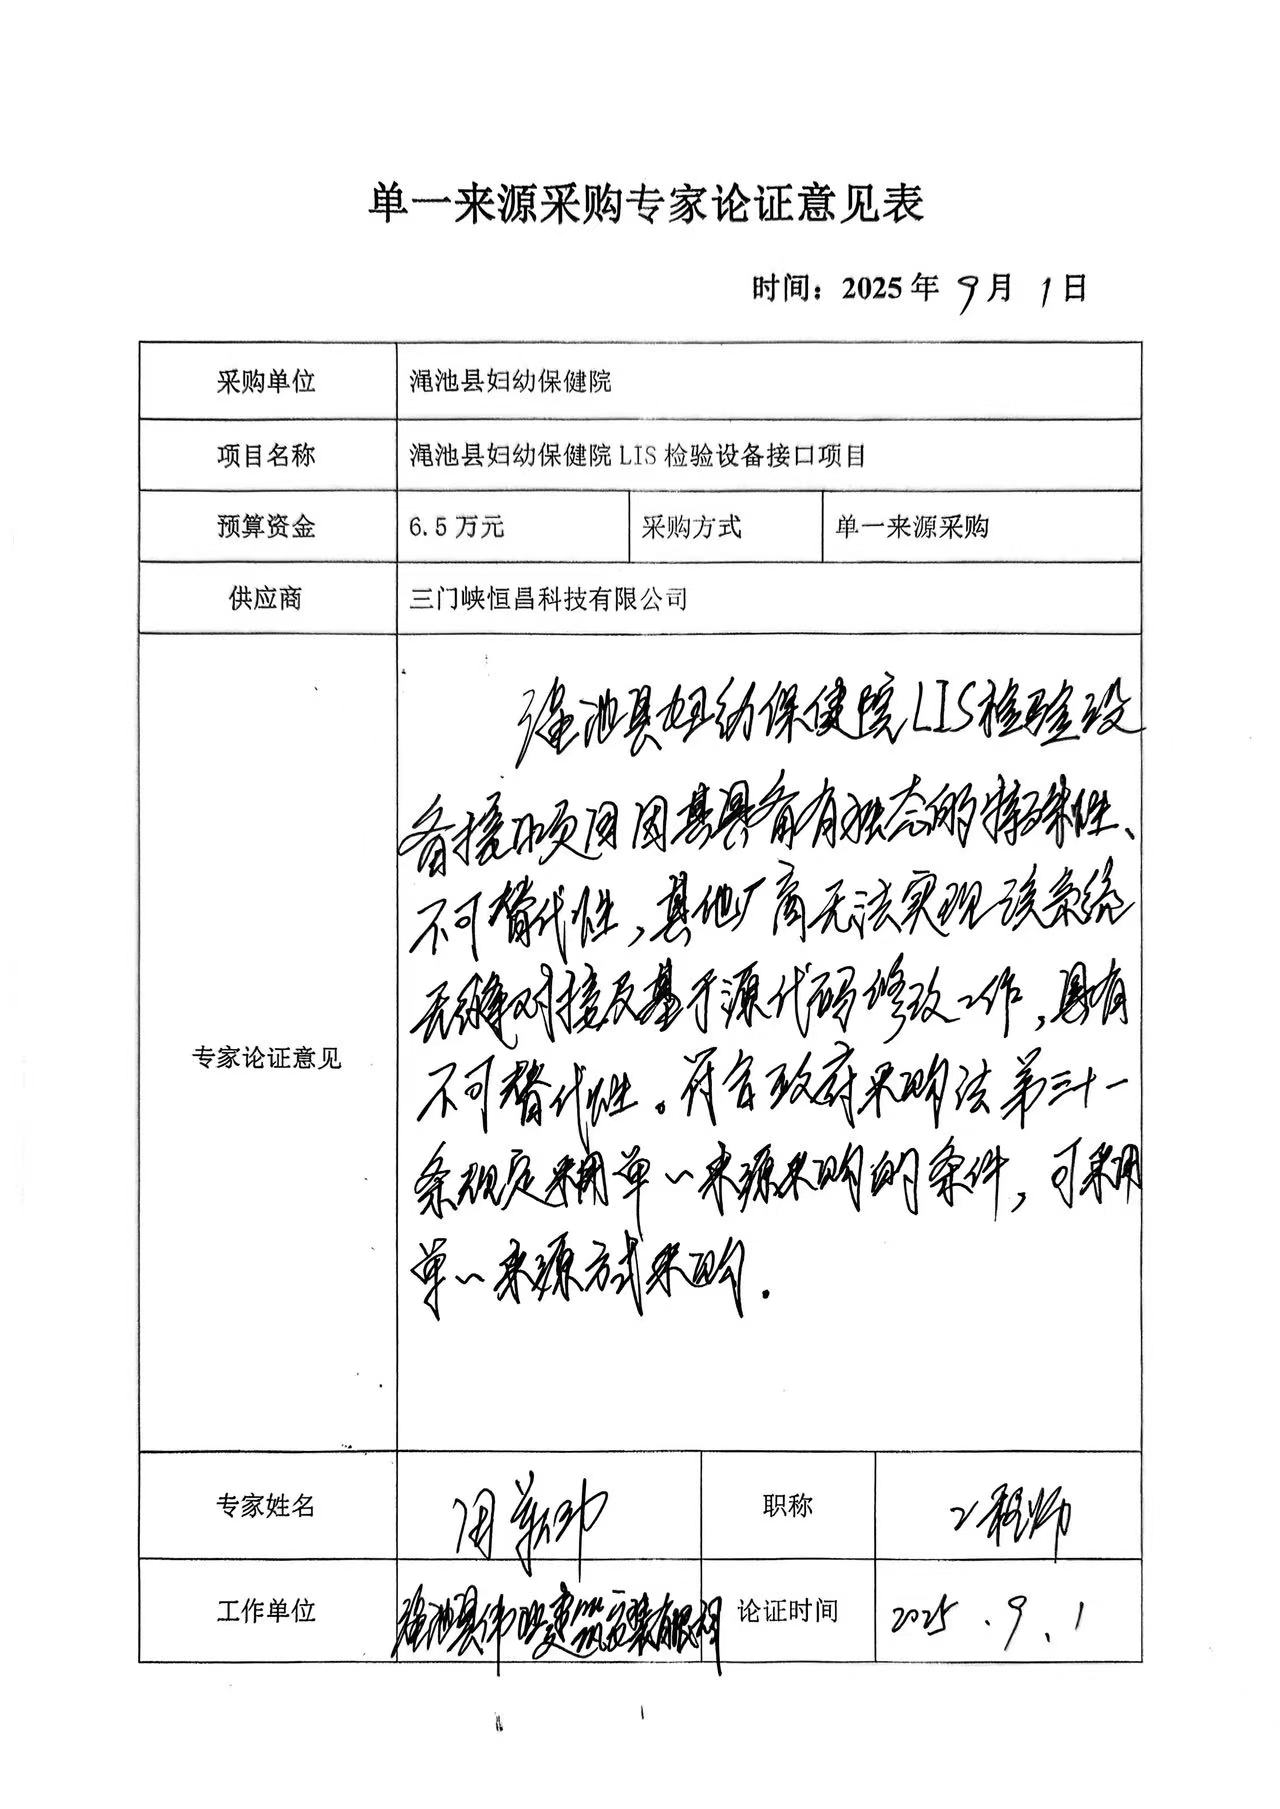 单一来源采购专家论证意见表
时间：2025年9月1日
采购单位 渑池县妇幼保健院
项目名称 渑池县妇幼保健院LIS检验设备接口项目
预算资金 6.5万元 采购方式 单一来源采购
供应商 三门峡恒昌科技有限公司
专家论证意见
渑池县妇幼保健院LIS检验设
备接口项目因其具备有独态的特殊性、
不可替代性，其他厂商无法实现该系统
无缝对接及基于源代码修改工作，具有
不可替代性。符合政府采购法第三十一
条规定采用单一来源采购的条件，可采用
单一来源方式采购.
专家姓名 职称 工程师
工作单位 渑池县伟建筑安装有限 论证时间 2025.9.1